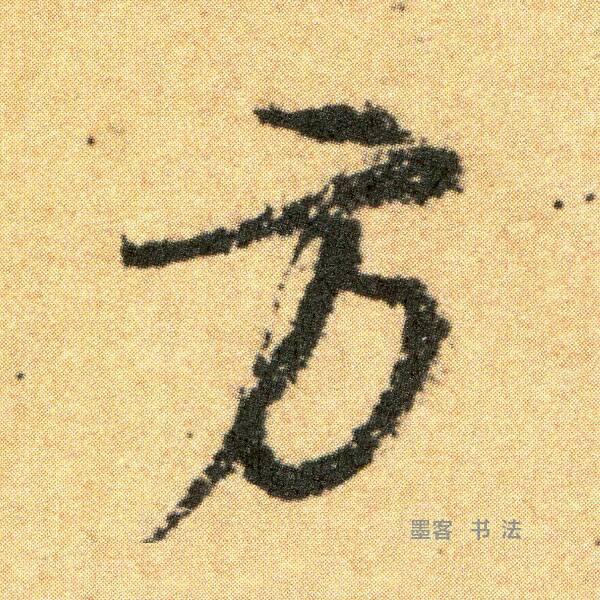 方
墨客 书 法